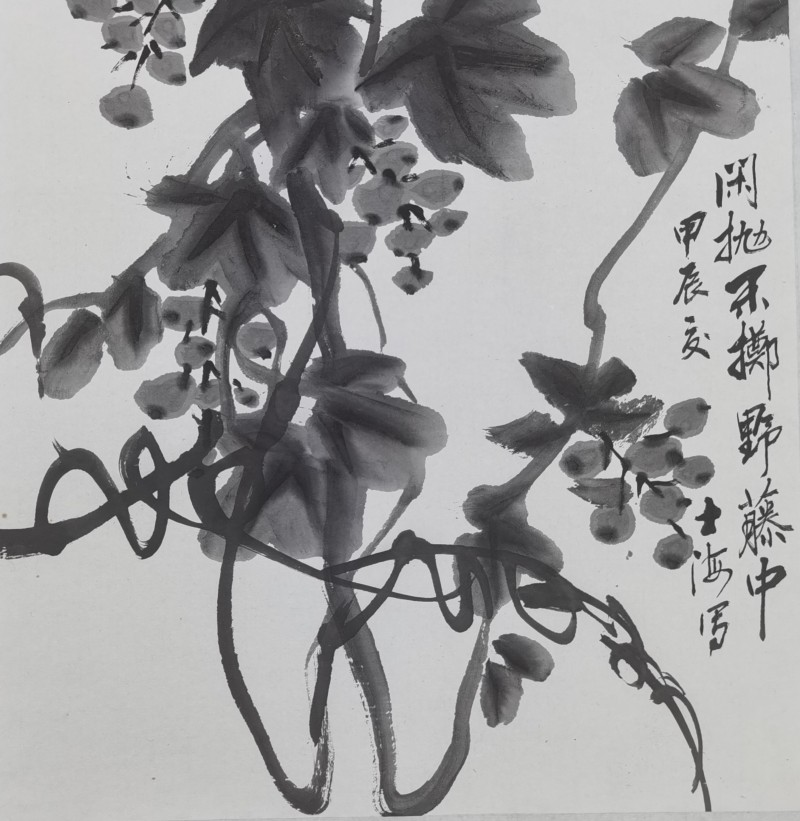 闲抛不擲野藤中
甲辰夏
士海写